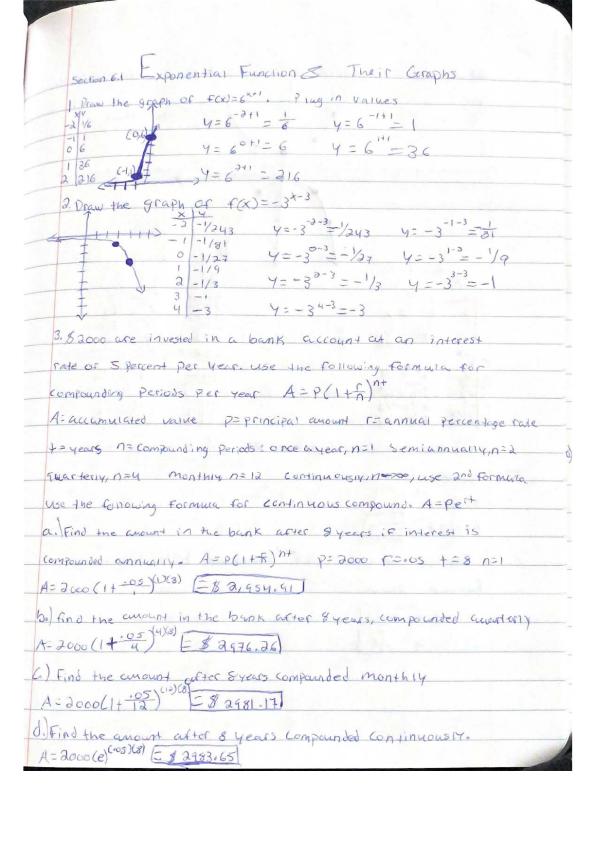 Section 6.1 Exponential Functions Their Graphs
1. Draw the graph of f(x)=6^x+1. Plug in values
x y
-2 1/6 y=6^-2+1 = 1/6 y=6^-1+1 = 1
-1 1 (0,6)
0 6 y=6^0+1 = 6 y=6^1+1 = 36
1 36
2 216 (-1,1) y=6^2+1 = 216
2. Draw the graph of f(x)=-3^x-3
x y
-2 -1/243 y=-3^-2-3 = -1/243 y=-3^-1-3 = -1/81
-1 -1/81
0 -1/27 y=-3^0-3 = -1/27 y=-3^1-3 = -1/9
1 -1/9
2 -1/3 y=-3^2-3 = -1/3 y=-3^3-3 = -1
3 -1
4 -3 y=-3^4-3 = -3
3. $2000 are invested in a bank account at an interest
rate of 5 percent per year. Use the following formula for
compounding periods per year A=P(1+r/n)^nt
A=accumulated value p=principal amount r=annual percentage rate
t=years n=compounding periods: once a year, n=1 semiannually, n=2
quarterly, n=4 monthly n=12 continuously, n→∞, use 2nd formula
use the following formula for continuous compound. A=Pe^rt
a.) Find the amount in the bank after 8 years if interest is
compounded annually. A=P(1+r/n)^nt p=2000 r=.05 t=8 n=1
A=2000(1+.05/1)^(1)(8) =$2,954.91
b.) find the amount in the bank after 8 years, compounded quarterly
A=2000(1+.05/4)^(4)(8) =$2976.26
c.) Find the amount after 8 years compounded monthly
A=2000(1+.05/12)^(12)(8) =$2981.17
d.) Find the amount after 8 years compounded continuously.
A=2000(e)^(.05)(8) =$2983.65